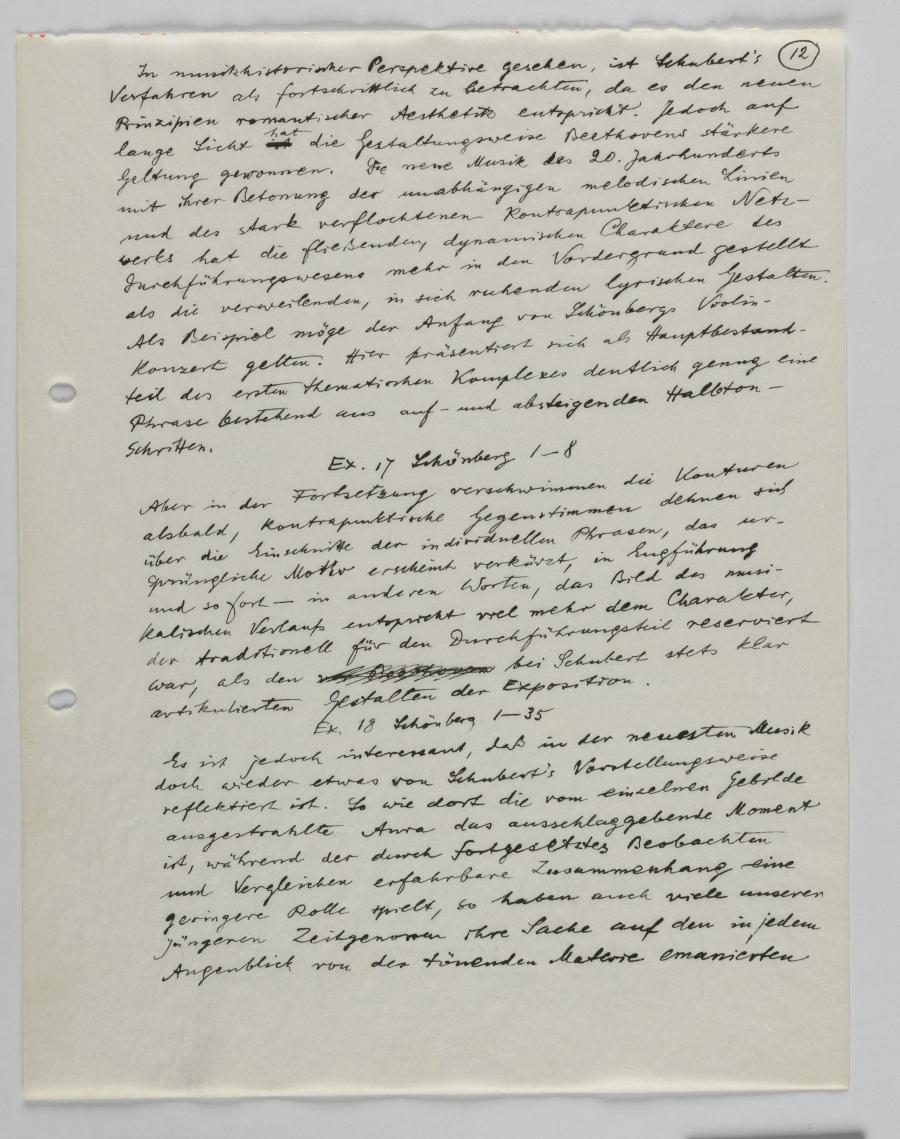 12
In musikhistorischer Perspektive gesehen, ist Schubert's
Verfahren als fortschrittlich zu betrachten, da es den neuen
Prinzipien romantischer Aesthetik entspricht. Jedoch auf
lange Sicht hat die Gestaltungsweise Beethovens stärkere
Geltung gewonnen. Die neue Musik des 20. Jahrhunderts
mit ihrer Betonung der unabhängigen melodischen Linien
und des stark verflochtenen kontrapunktischen Netz-
werks hat die fließenden, dynamischen Charaktere des
Durchführungswesens mehr in den Vordergrund gestellt
als die verweilenden, in sich ruhenden lyrischen Gestalten.
Als Beispiel möge der Anfang von Schönbergs Violin-
konzert gelten. Hier präsentiert sich als Hauptbestand-
teil des ersten thematischen Komplexes deutlich genug eine
Phrase bestehend aus auf- und absteigenden Halbton-
Schritten.
Ex. 17 Schönberg 1-8
Aber in der Fortsetzung verschwimmen die Konturen
alsbald, kontrapunktische Gegenstimmen dehnen sich
über die Einschnitte der individuellen Phrasen, das ur-
sprüngliche Motiv erscheint verkürzt, in Engführung
und so fort — in anderen Worten, das Bild des musi-
kalischen Verlaufs entspricht viel mehr dem Charakter,
der traditionell für den Durchführungsteil reserviert
war, als den bei Schubert stets klar
artikulierten Gestalten der Exposition.
Ex. 18 Schönberg 1-35
Es ist jedoch interessant, daß in der neuesten Musik
doch wieder etwas von Schubert's Vorstellungsweise
reflektiert ist. So wie dort die vom einzelnen Gebilde
ausgestrahlte Aura das ausschlaggebende Moment
ist, während der durch fortgesetztes Beobachten
und Vergleichen erfahrbare Zusammenhang eine
geringere Rolle spielt, so haben auch viele unserer
jüngeren Zeitgenossen ihre Sache auf den in jedem
Augenblick von der tönenden Materie emanierten